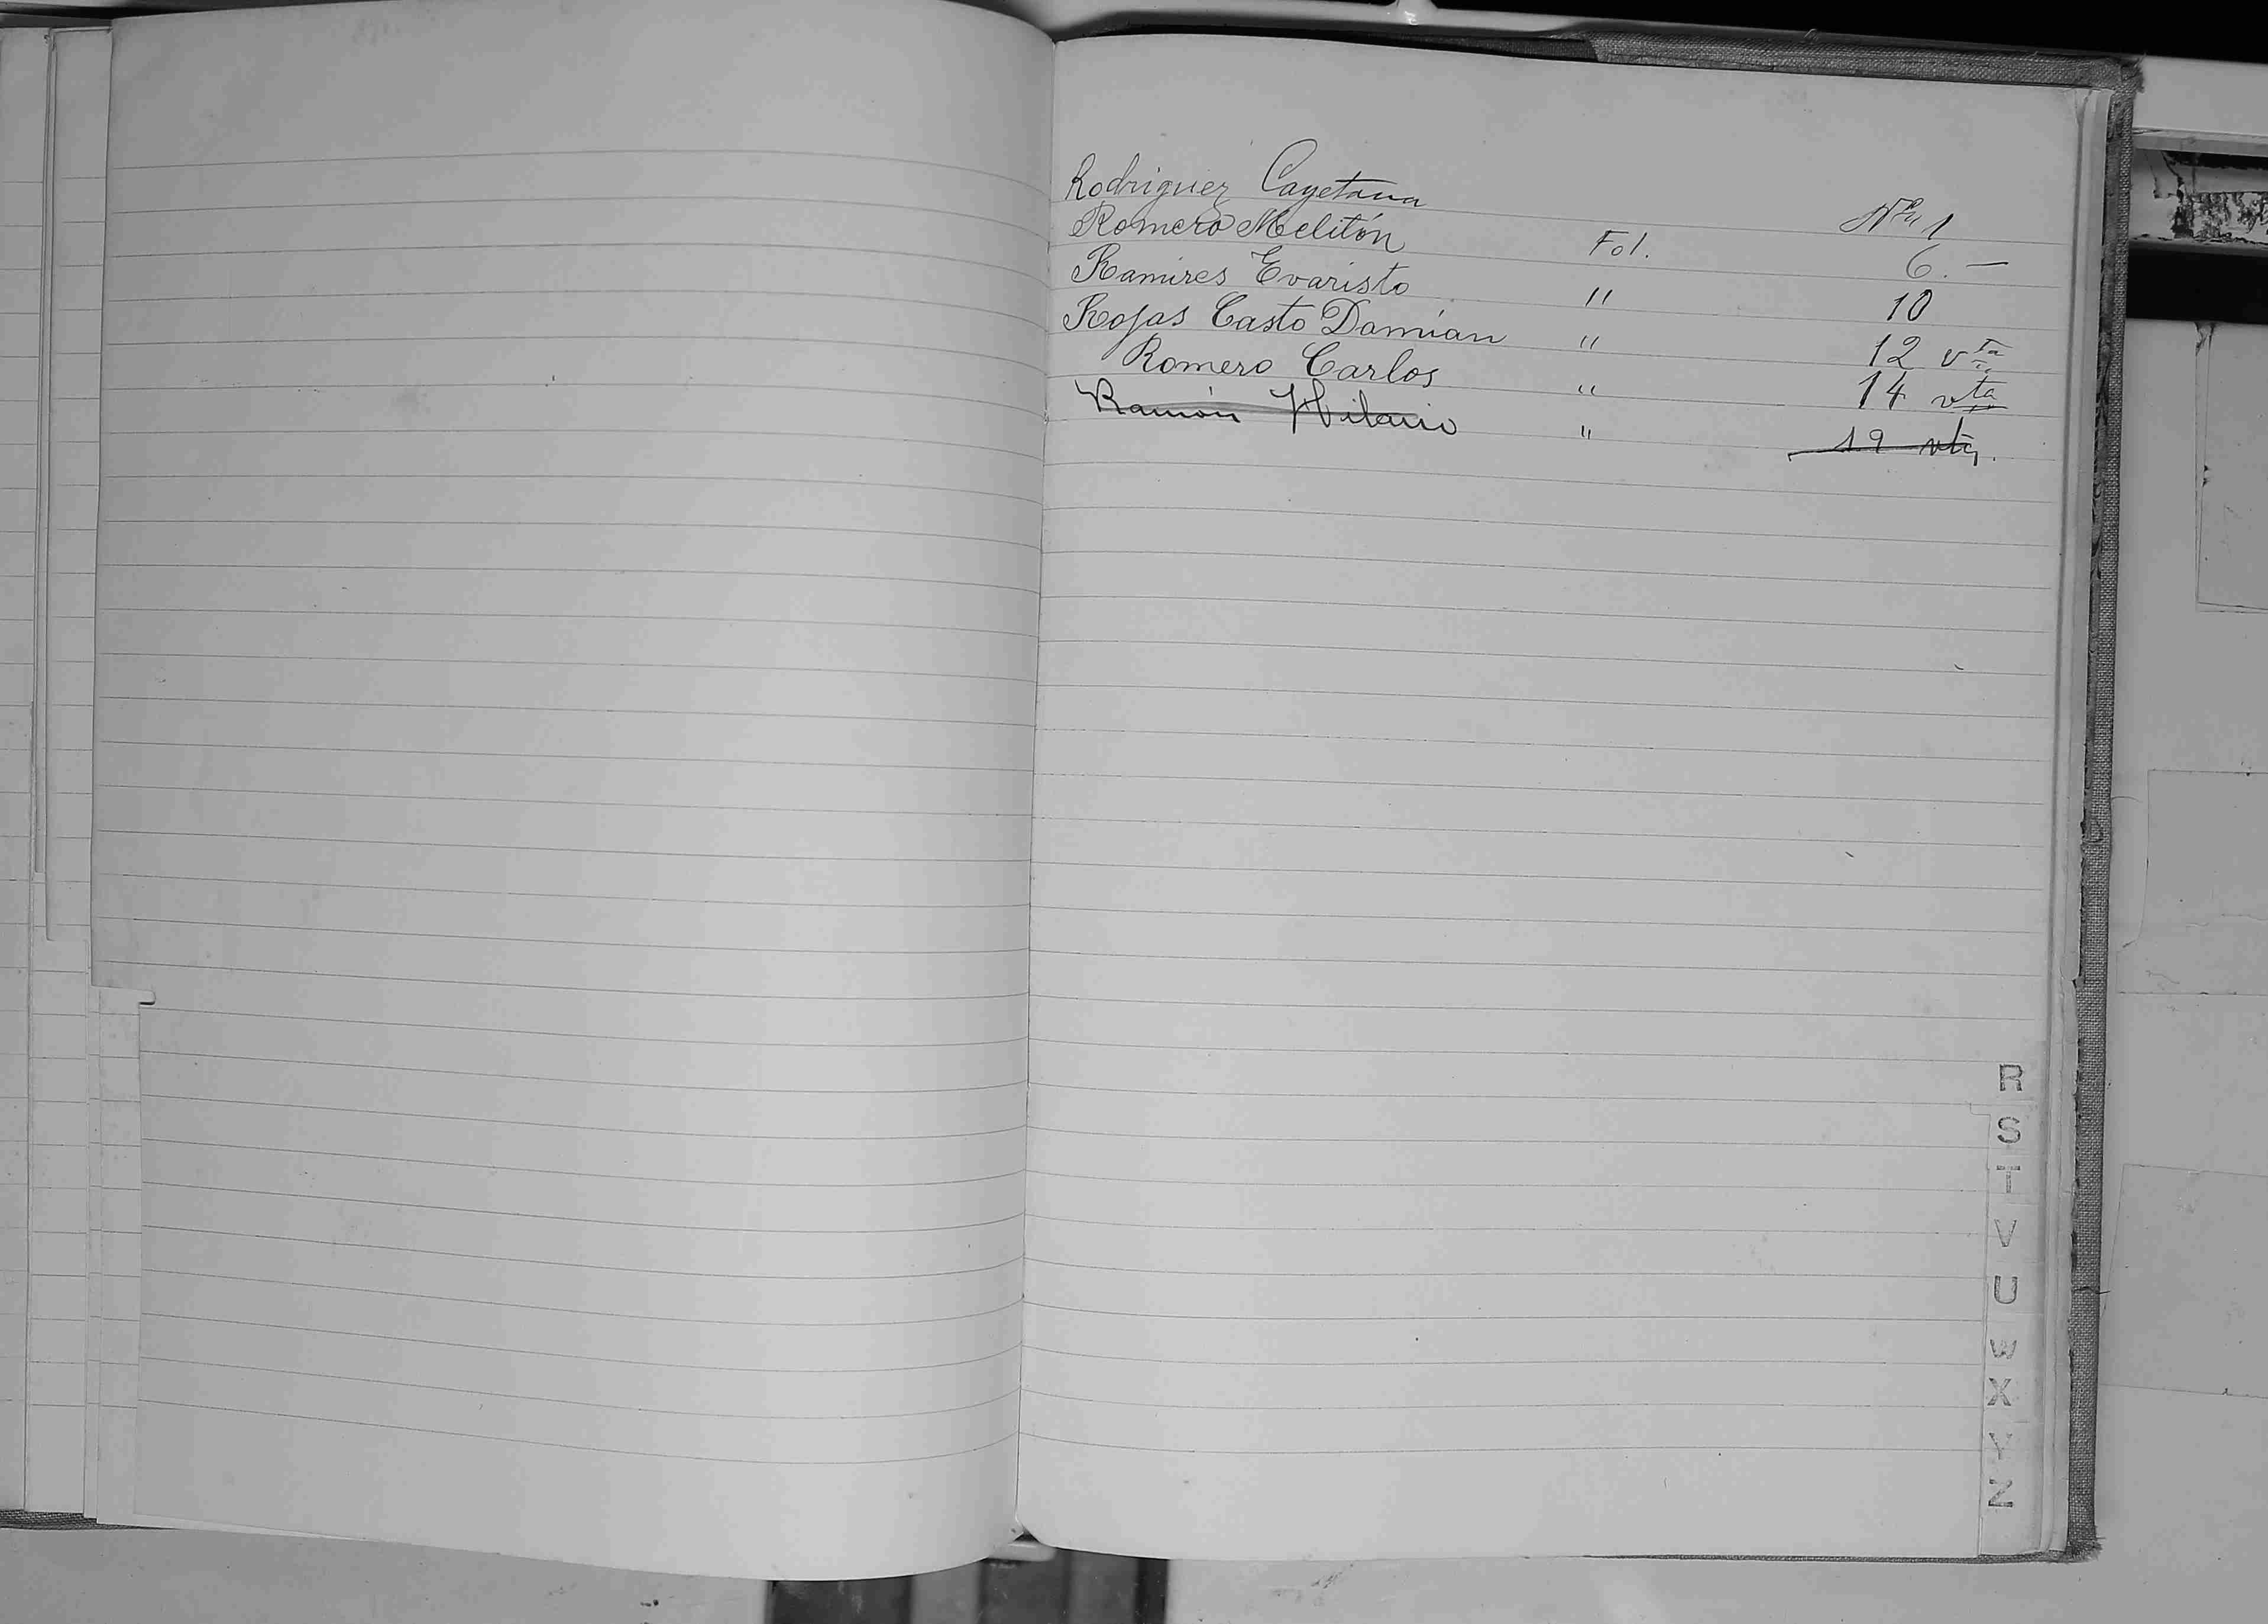 Rodriguez Cayetana Nº 1
Romero Melitón Fol. 6. —
Ramires Evaristo " 10
Rojas Casto Damian " 12 vta
Romero Carlos " 14 vta
Ramón Hilario " 19 vta.
R
S
T
V
U
W
X
Y
Z